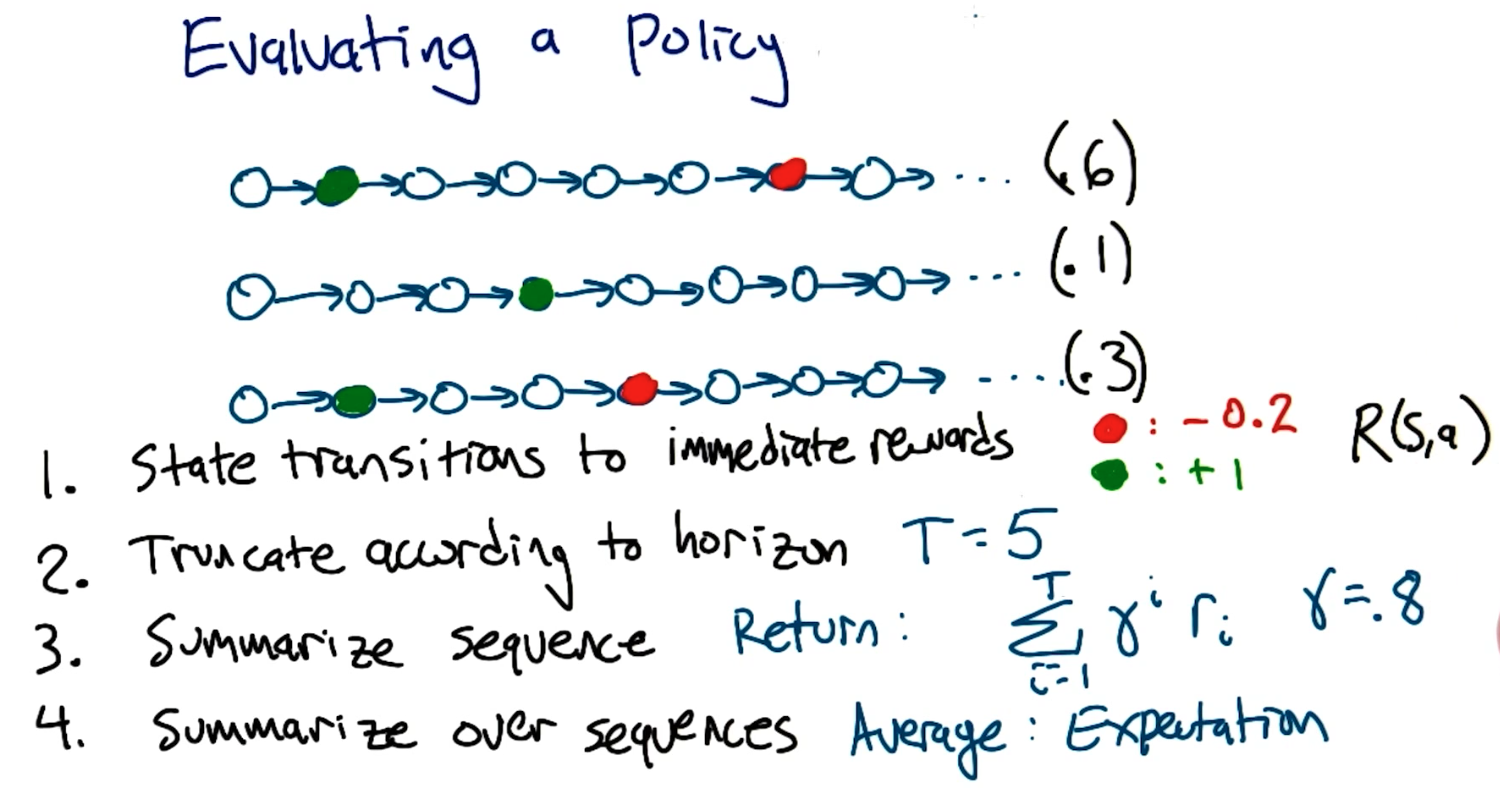 Evaluating a Policy
... (.6)
... (.1)
.... (.3)
1. State transitions to immediate rewards
: -0.2 R(s,a)
: +1
2. Truncate according to horizon T=5
3. Summarize sequence Return: \sum_{i=1}^{T} γ^i r_i γ=.8
4. Summarize over sequences Average: Expectation